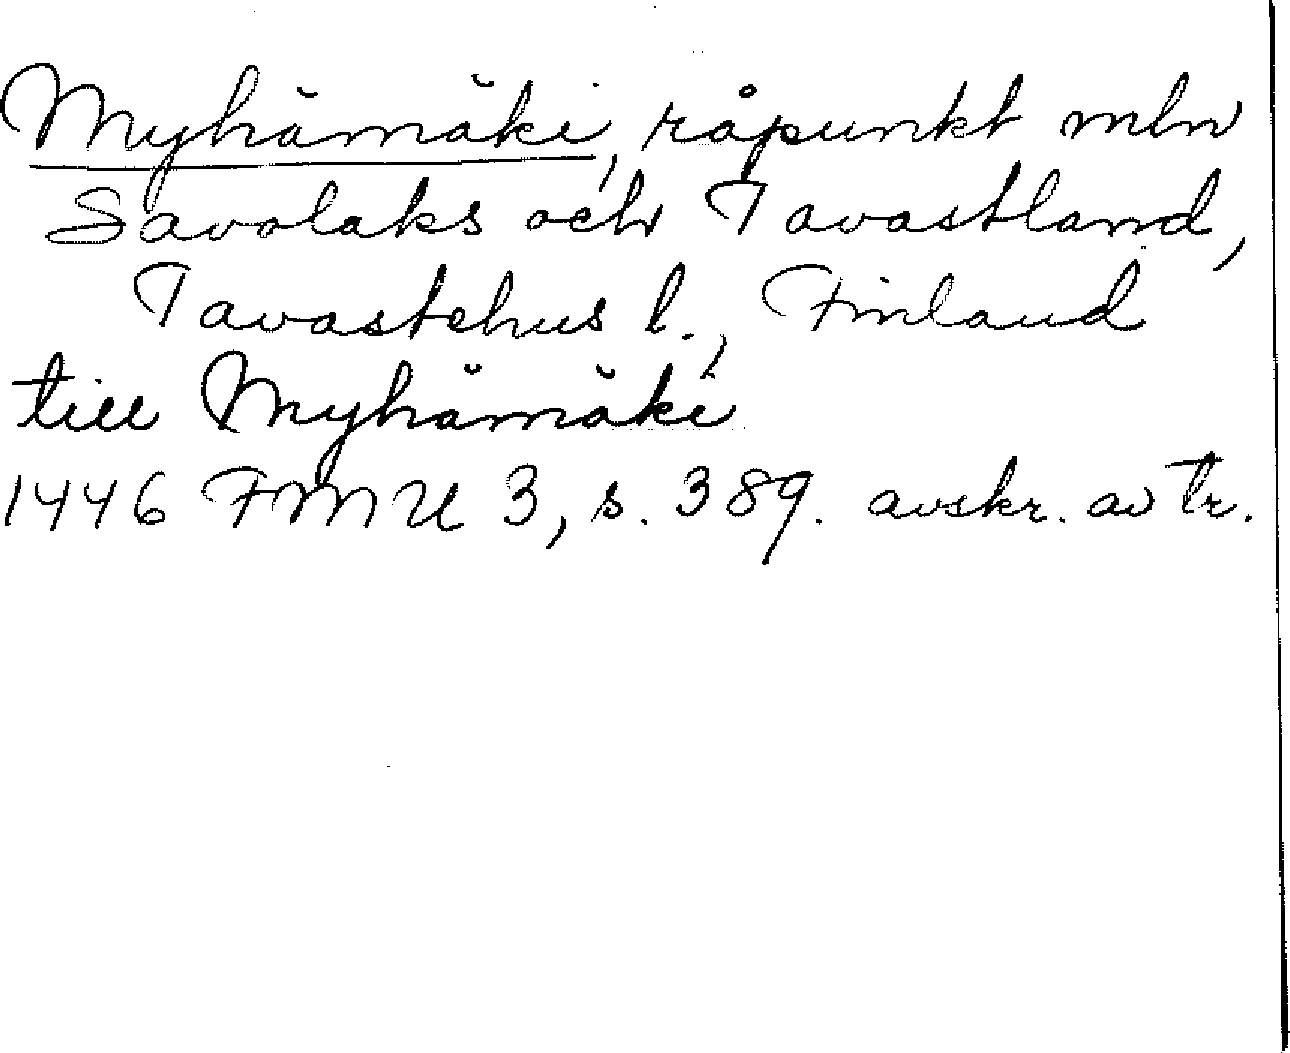 Myhämäki, råpunkt mln
Savolaks och Tavastland,
Tavastehus l., Finland
till Myhämäki
1446 FMU 3, s. 389. avskr. av tr.